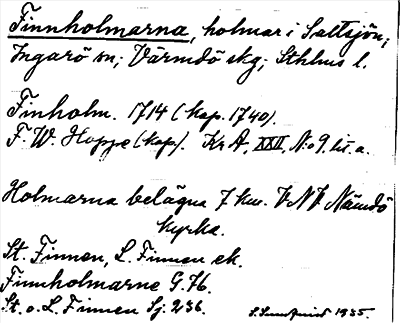 Finnholmarna, holmar i Saltsjön;
Ingarö sn; Värmdö skg; Sthlms l.
Finholm. 1714 (kop. 1740).
F. W. Hoppe (kop). Kr A, XXII, N:o 9, lit. a.
Holmarna belägna 7 km. V N V. Nämdö
kyrka.
St. Finnen, L. Finnen ek.
Finnholmarne G. 76.
St. o. L. Finnen Sj. 236.
1935.